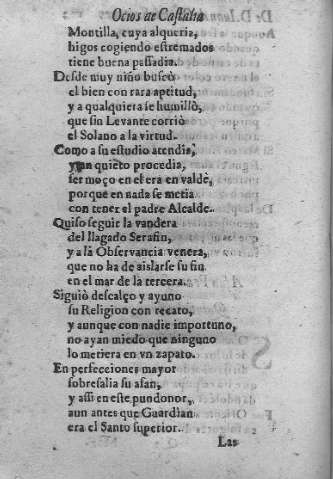 Ocios de Castalia
Montilla, cuya alqueria,
higos cogiendo estremados
tiene buena passadia.
Desde muy niño buscò
el bien con rara aptitud,
y a qualquiera se humillò,
que sin Levante corriò
el Solano a la virtud.
Como a su estudio atendia,
y tan quieto procedia,
ser moço en el era en valdè,
porque en nada se metia
con tener el padre Alcalde.
Quiso seguir la vandera
del llagado Serafin,
y a la Observancia venera,
que no ha de aislarse su fin
en el mar de la tercera.
Siguiò descalço y ayuno
su Religion con recato,
y aunque con nadie importuno,
no ayan miedo que ninguno
lo metiera en vn zapato.
En perfecciones mayor
sobresalia su afan,
y assi en este pundonor,
aun antes que Guardian
era el Santo superior.
Las